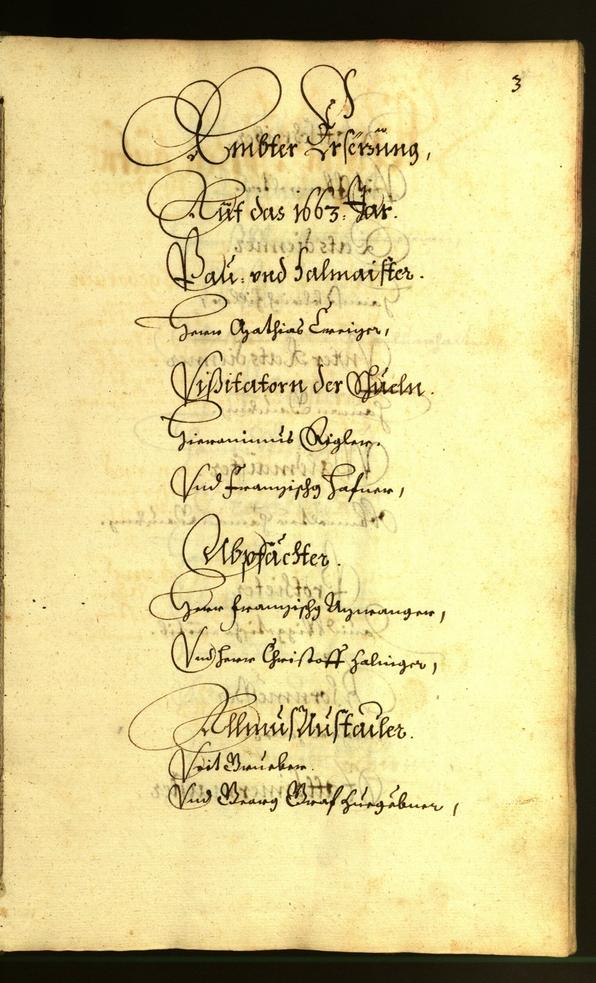 3
Ambter Ersezung,
Auf das 1663. Jar.
Bau: vnd Salmaister.
Herr Mathias Creizer,
Vißitatorn der Schueln.
Hieronimus Rigler.
Vnd Franzischg Hafner,
Abpfächter.
Herr Franzischg
Vnd Herr Christoff Halinger,
Allmusaustailer.
Veit Brucker.
Vnd Georg Graf